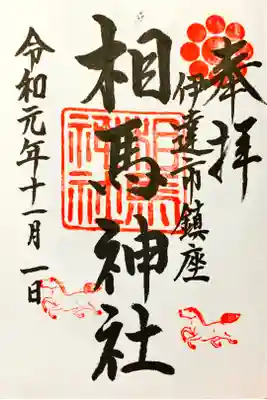 奉拝
伊達市鎮座
相馬神社
令和元年十一月一日